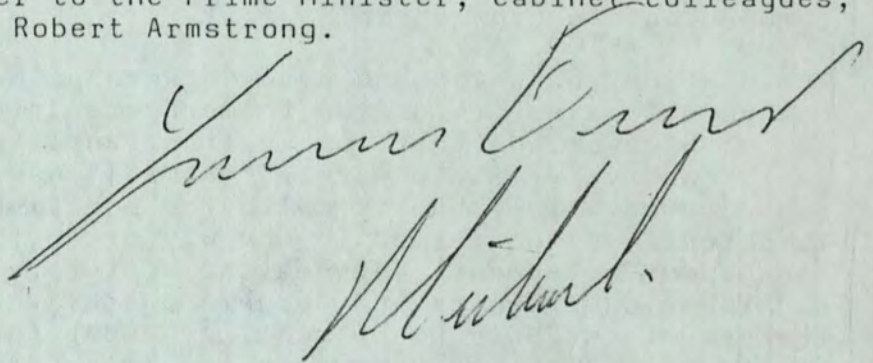 er to the Prime Minister, Cabinet colleagues,
Robert Armstrong.
Yours Ever
Michael.